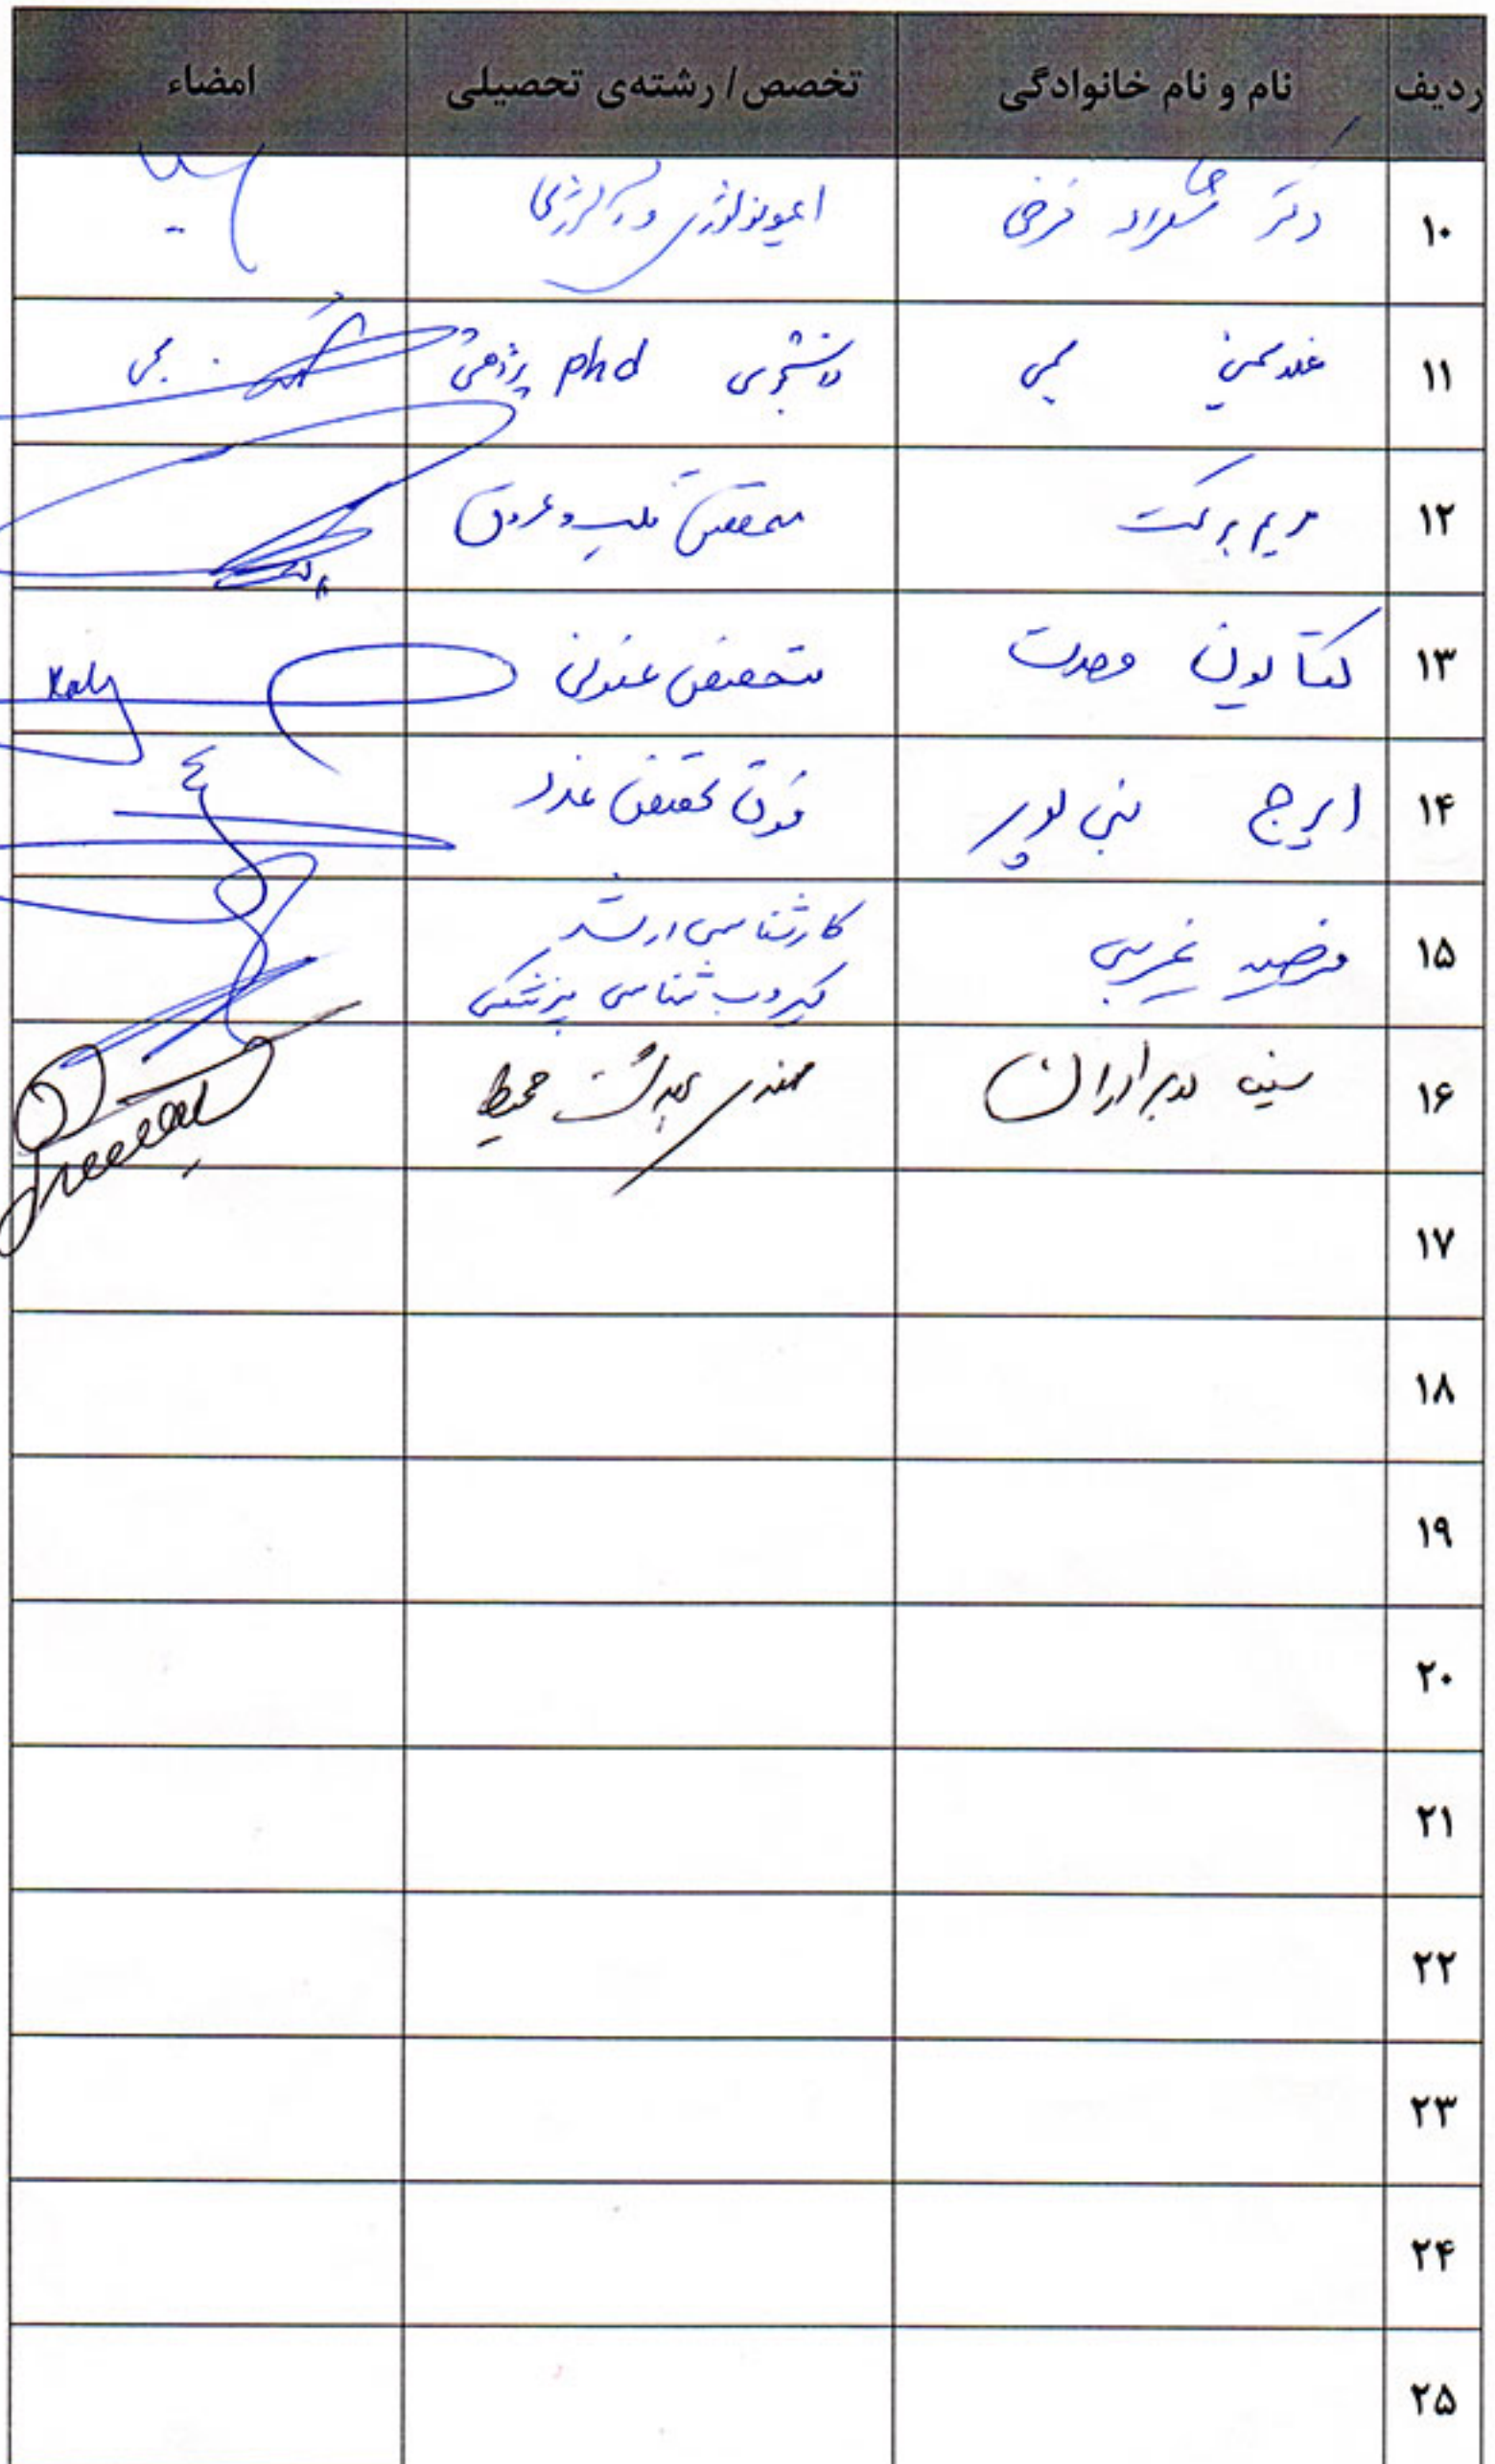 ردیف نام و نام خانوادگی تخصص / رشته‌ی تحصیلی امضاء
۱۰ دکتر فرخی ایمونولوژی و آلرژی
۱۱ دانشجوی phd پژوهشی
۱۲ مریم برکت متخصص قلب و عروق
۱۳ کتایون وحدت متخصص عفونی
۱۴ ایرج نبی پور فوق تخصص غدد
۱۵ غریبی کارشناسی ارشد
میکروب شناسی پزشکی
۱۶ سینا دوبرادران مهندسی بهداشت محیط
۱۷
۱۸
۱۹
۲۰
۲۱
۲۲
۲۳
۲۴
۲۵